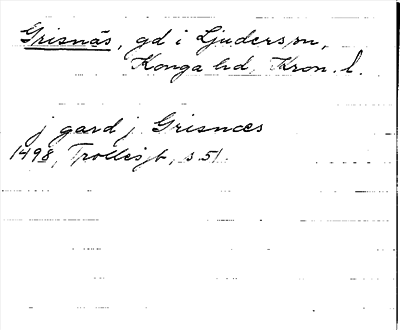 Grisnäs, gd i Ljuders sn,
Konga hd, Kron. l.
j gard j Grisnæs
1498, Trolles jb, s 51.